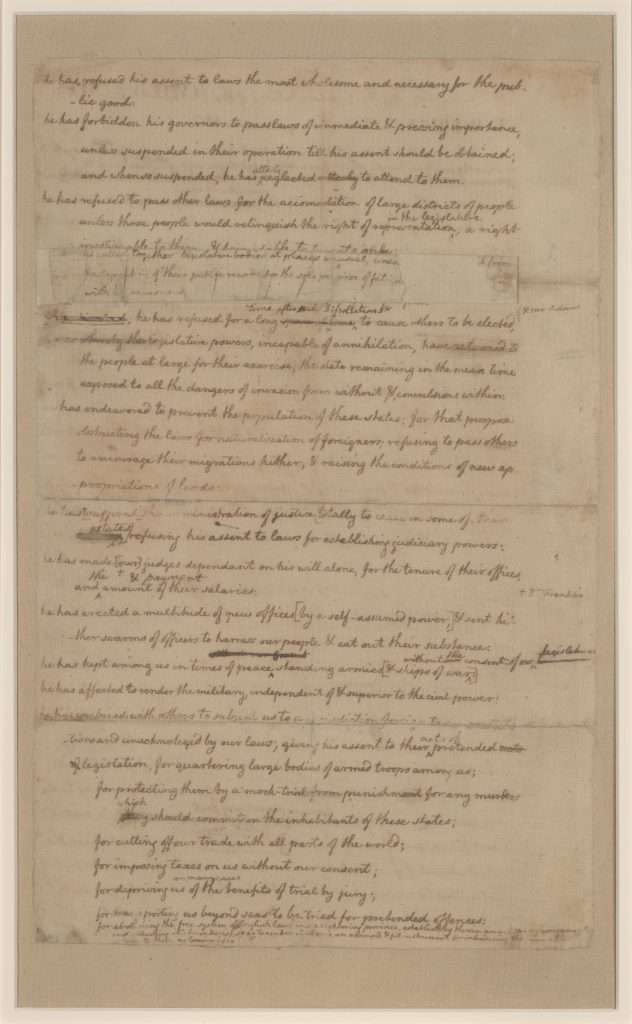 he has refused his assent to laws the most wholesome and necessary for the pub-
-lic good:
he has forbidden his governors to pass laws of immediate & pressing importance,
unless suspended in their operation till his assent should be obtained;
and when so suspended, he has utterly neglected utterly to attend to them.
he has refused to pass other laws for the accomodation of large districts of people
unless those people would relinquish the right of representation, in the legislature a right
inestimable to them, & formidable to tyrants only:
he has called together legislative bodies at places unusual, unco
& from
he has refused for a long time after such Dissolutions to cause others to be elected,
whereby the legislative powers, incapable of annihilation, have returned to
the people at large for their exercise, the state remaining in the mean time
exposed to all the dangers of invasion from without & convulsions within:
has endeavored to prevent the population of these states; for that purpose
obstructing the laws for naturalization of foreigners; refusing to pass others
to encourage their migrations hither; & raising the conditions of new ap
-propriations of lands:
he has administration of justice totally to cease in some of these
states refusing his assent to laws for establishing judiciary powers:
he has made [our] judges dependant on his will alone, for the tenure of their offices,
and the + & payment amount of their salaries:
+ Dr Franklin
he has erected a multitude of new offices [by a self-assumed power,] & sent hi-
ther swarms of officers to harrass our people & eat out their substance:
he has kept among us in times of peace standing armies [& ships of war] without the consent of our legislatures
he has affected to render the military, independent of & superior to the civil power:
he has combined with others to subject us to a jurisdiction foreign to our constitu
tions and unacknoleged by our laws; giving his assent to their pretended acts of
of legislation, for quartering large bodies of armed troops among us;
for protecting them by a mock-trial from punishment for any murders
which they should commit on the inhabitants of these states;
for cutting off our trade with all parts of the world;
for imposing taxes on us without our consent;
for depriving us in many cases of the benefits of trial by jury;
for transporting us beyond seas to be tried for pretended offences:
for abolishing the free system of English laws in a neighboring province, establishing therein an arbitrary government